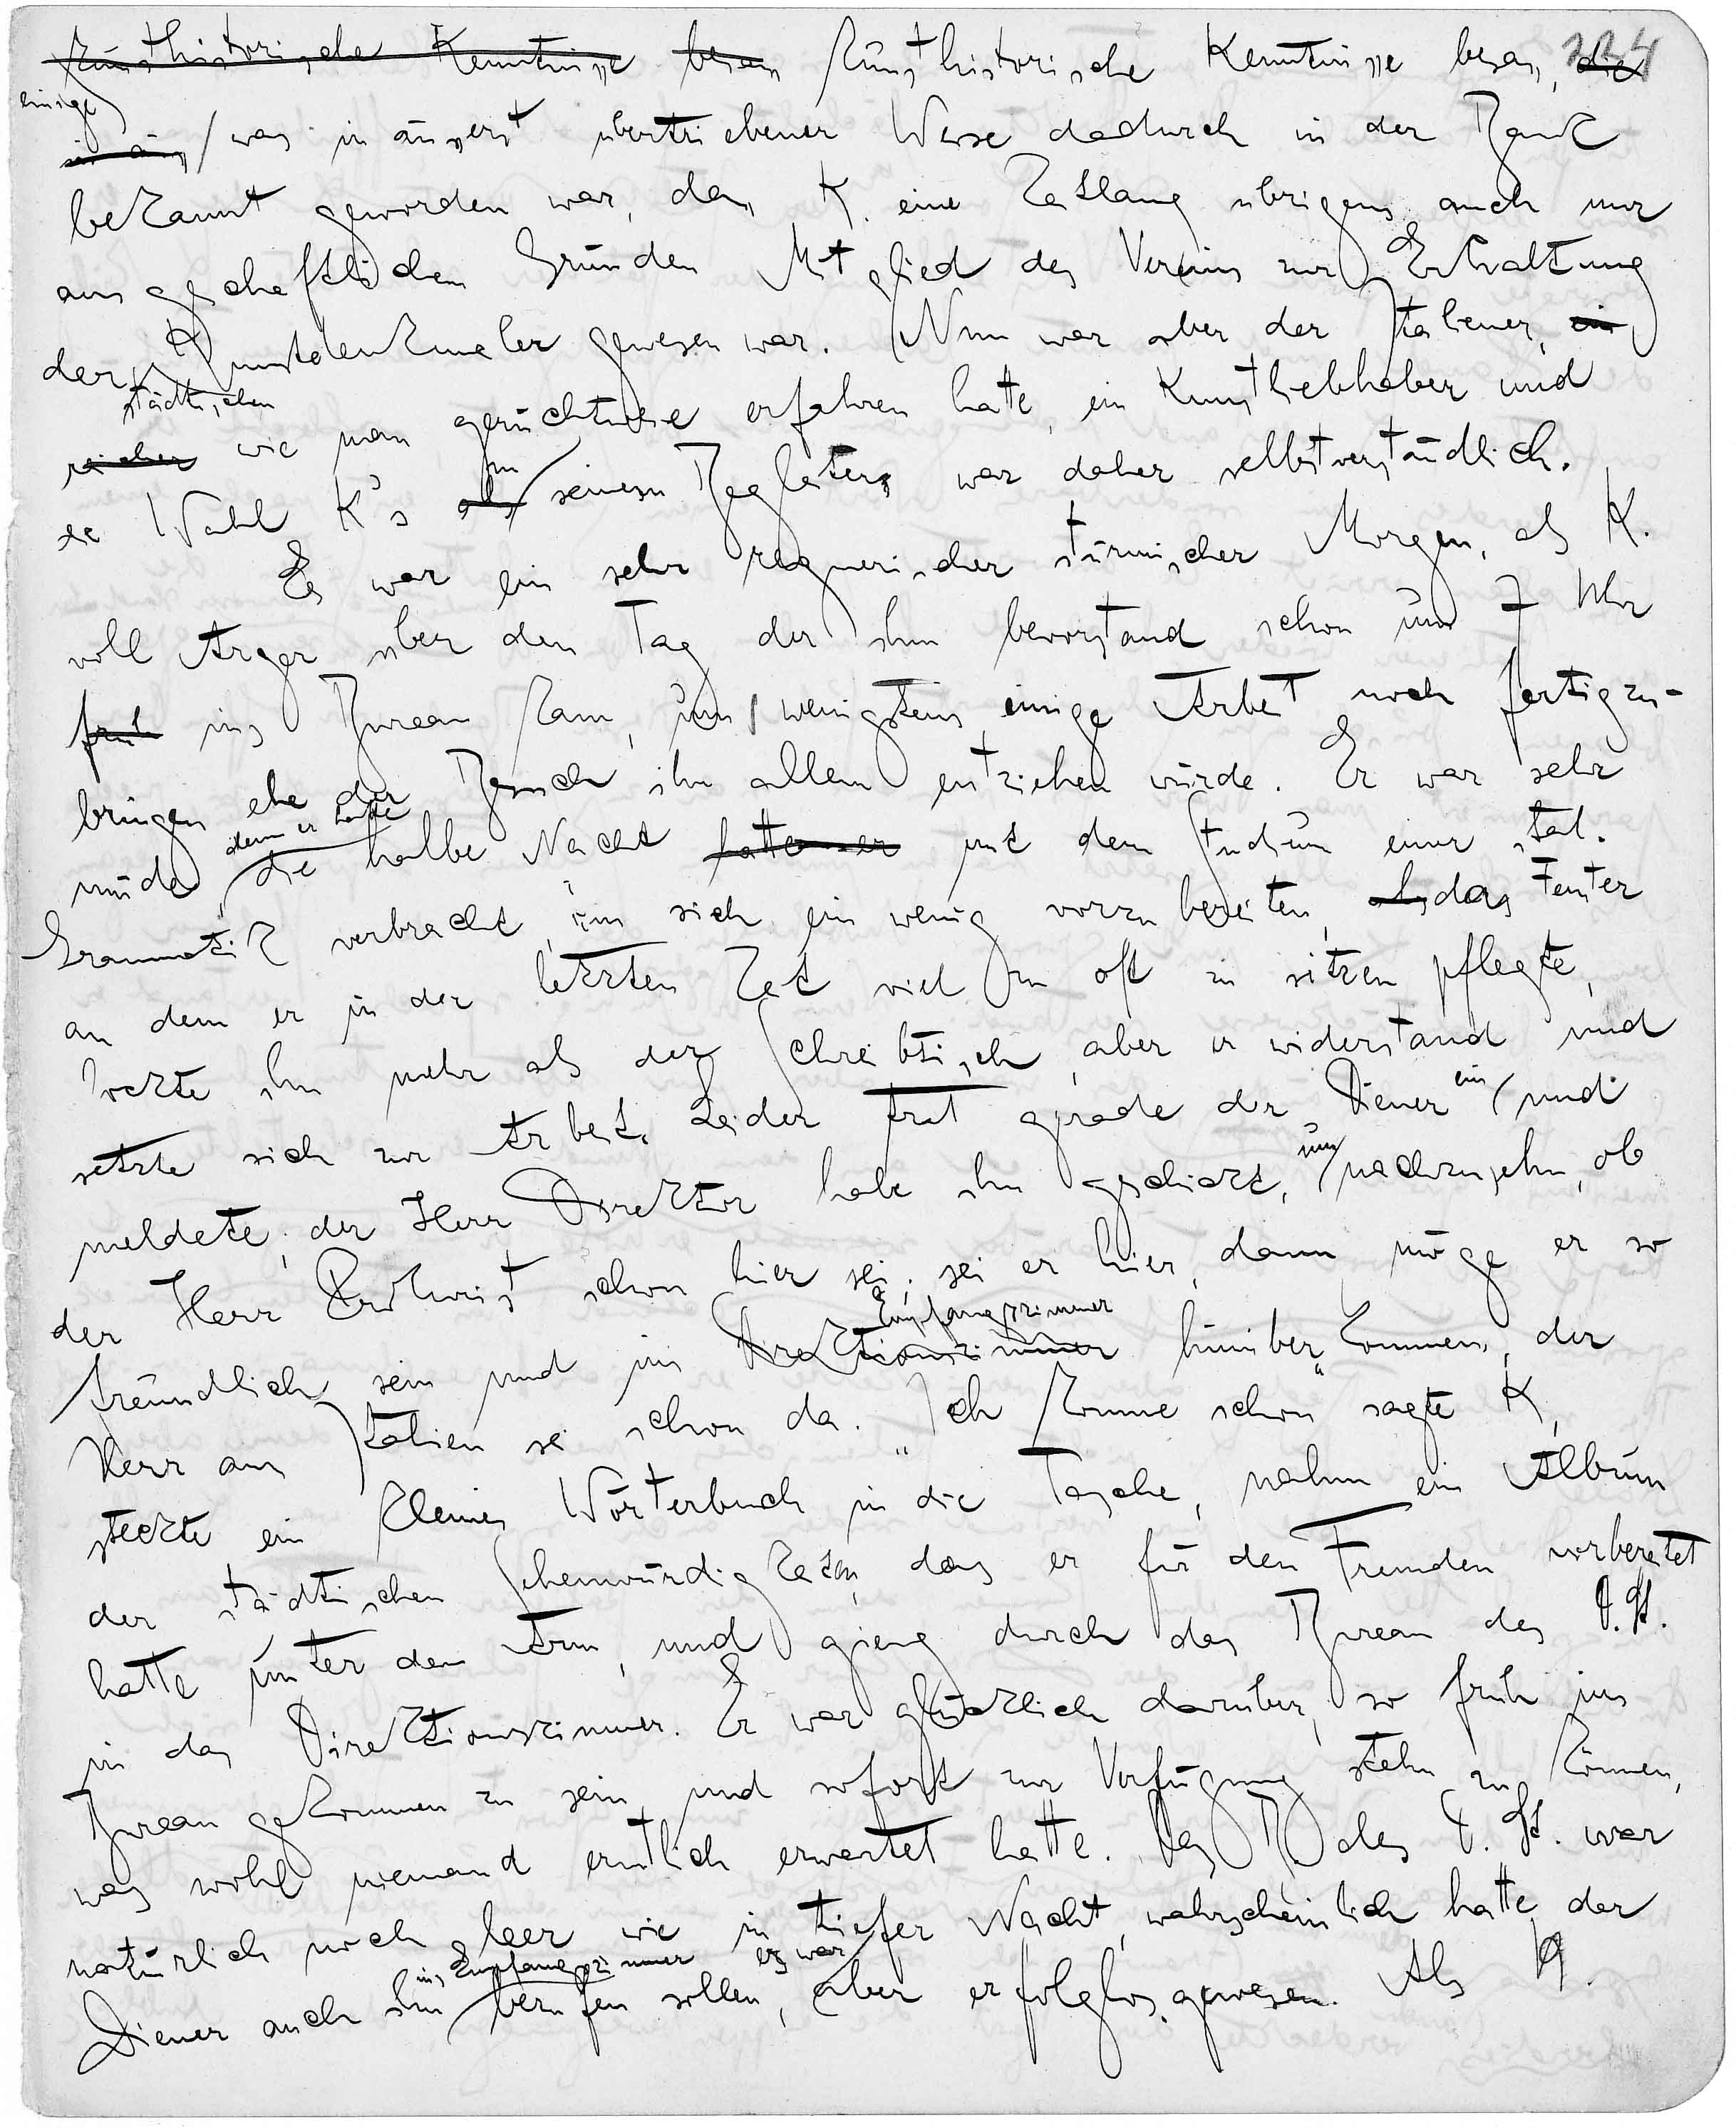 kunsthistorische Kenntnisse besass kunsthistorische Kenntnisse besass, die 224
einige
in äuss was in äusserst übertriebener Weise dadurch in der Bank
bekannt geworden war, dass K. eine Zeitlang übrigens auch nur
aus geschäftlichen Gründen Mitglied des Vereins zur Erhaltung
der Kunstdenkmäler gewesen war. Nun war aber der Italiener, ein
städtischen
reicher wie man gerüchtweise erfahren hatte, ein Kunstliebhaber und
zu
die Wahl K's als seinem Begleiter war daher selbstverständlich.
Es war ein sehr regnerischer stürmischer Morgen, als K.
voll Ärger über den Tag der ihm bevorstand schon um 7 Uhr
früh ins Bureau kam, um wenigstens einige Arbeit noch fertigzu-
bringen ehe der Besuch ihn allem entziehen würde. Er war sehr
denn er hatte
müde, die halbe Nacht hatte er mit dem Studium einer ital.
Grammatik verbracht um sich ein wenig vorzubereiten, als das Fenster
an dem er in der letzten Zeit viel zu oft zu sitzen pflegte,
lockte ihn mehr als der Schreibtisch, aber er widerstand und
setzte sich zur Arbeit. Leider trat gerade der Diener ein und
meldete, der Herr Direktor habe ihn geschickt, um nachzusehn, ob
der Herr Prokurist schon hier sei; sei er hier, dann möge er so
Empfangszimmer
freundlich sein und ins Direktionszimmer hinüberkommen, der
Herr aus Italien sei schon da. "Ich komme schon" sagte K,
steckte ein kleines Wörterbuch in die Tasche, nahm ein Album
der städtischen Sehenswürdigkeiten, das er für den Fremden vorbereitet
hatte unter den Arm, und gieng durch das Bureau des D. St.
in das Direktionszimmer. Er war glücklich darüber, so früh ins
Bureau gekommen zu sein und sofort zur Verfügung stehn zu können,
was wohl niemand ernstlich erwartet hatte. Das B. des D. St. war
natürlich noch leer wie in tiefer Nacht, wahrscheinlich hatte der
ins Empfangszimmer es war
Diener auch ihn berufen sollen, aber erfolglos gewesen. Als K.